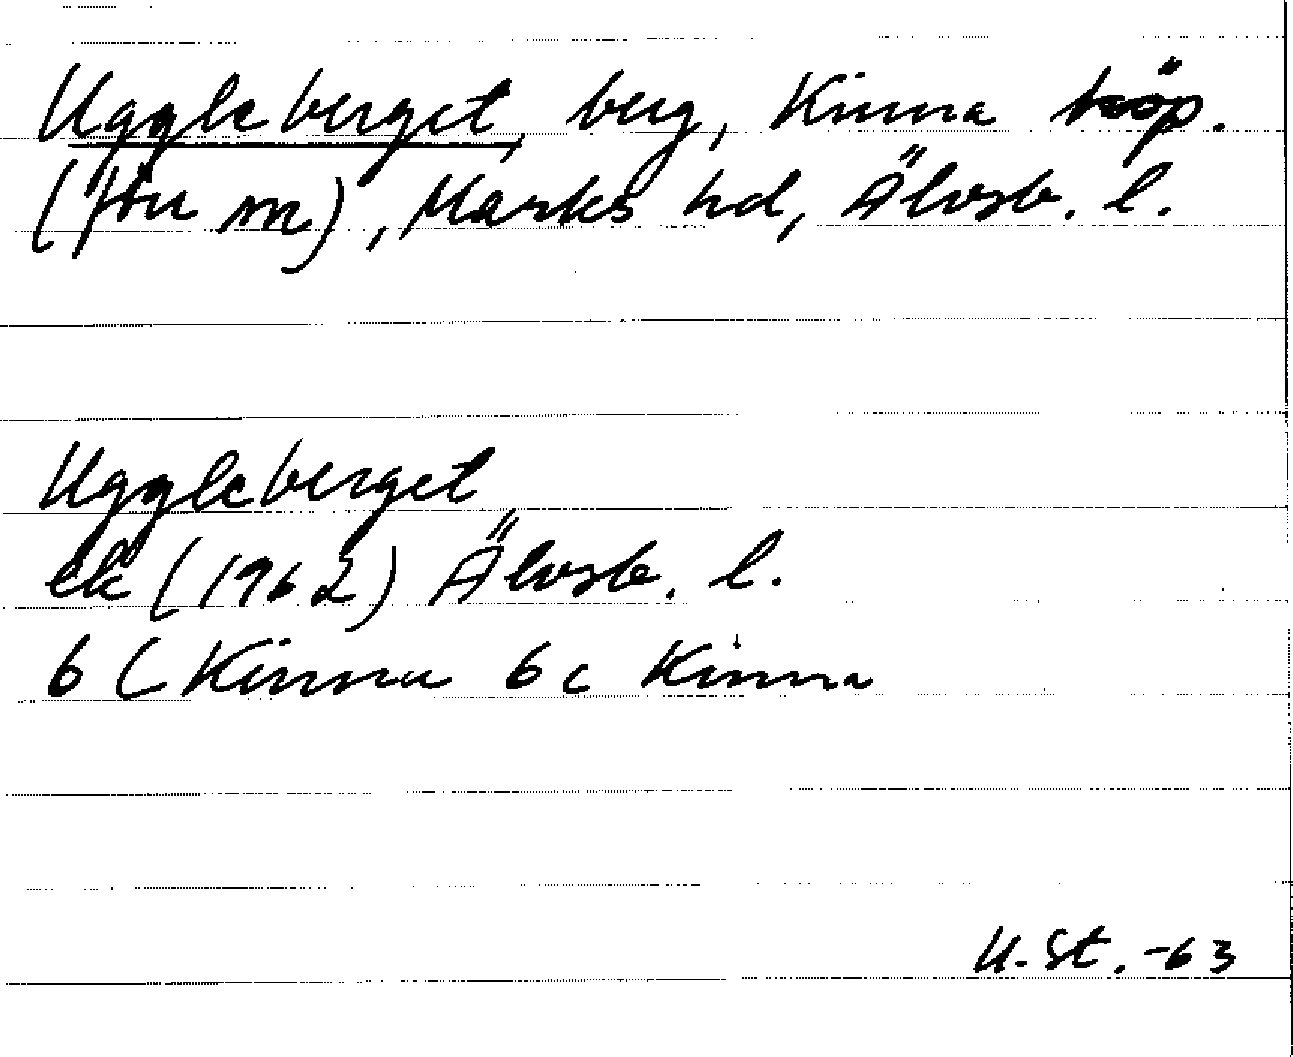 Uggleberget, berg, Kinna köp.
(Fru m), Marks hd, Älvsb. l.
Uggleberget
ek (1962) Älvsb. l.
6 ( Kinna 6c Kinna
U. St. -63